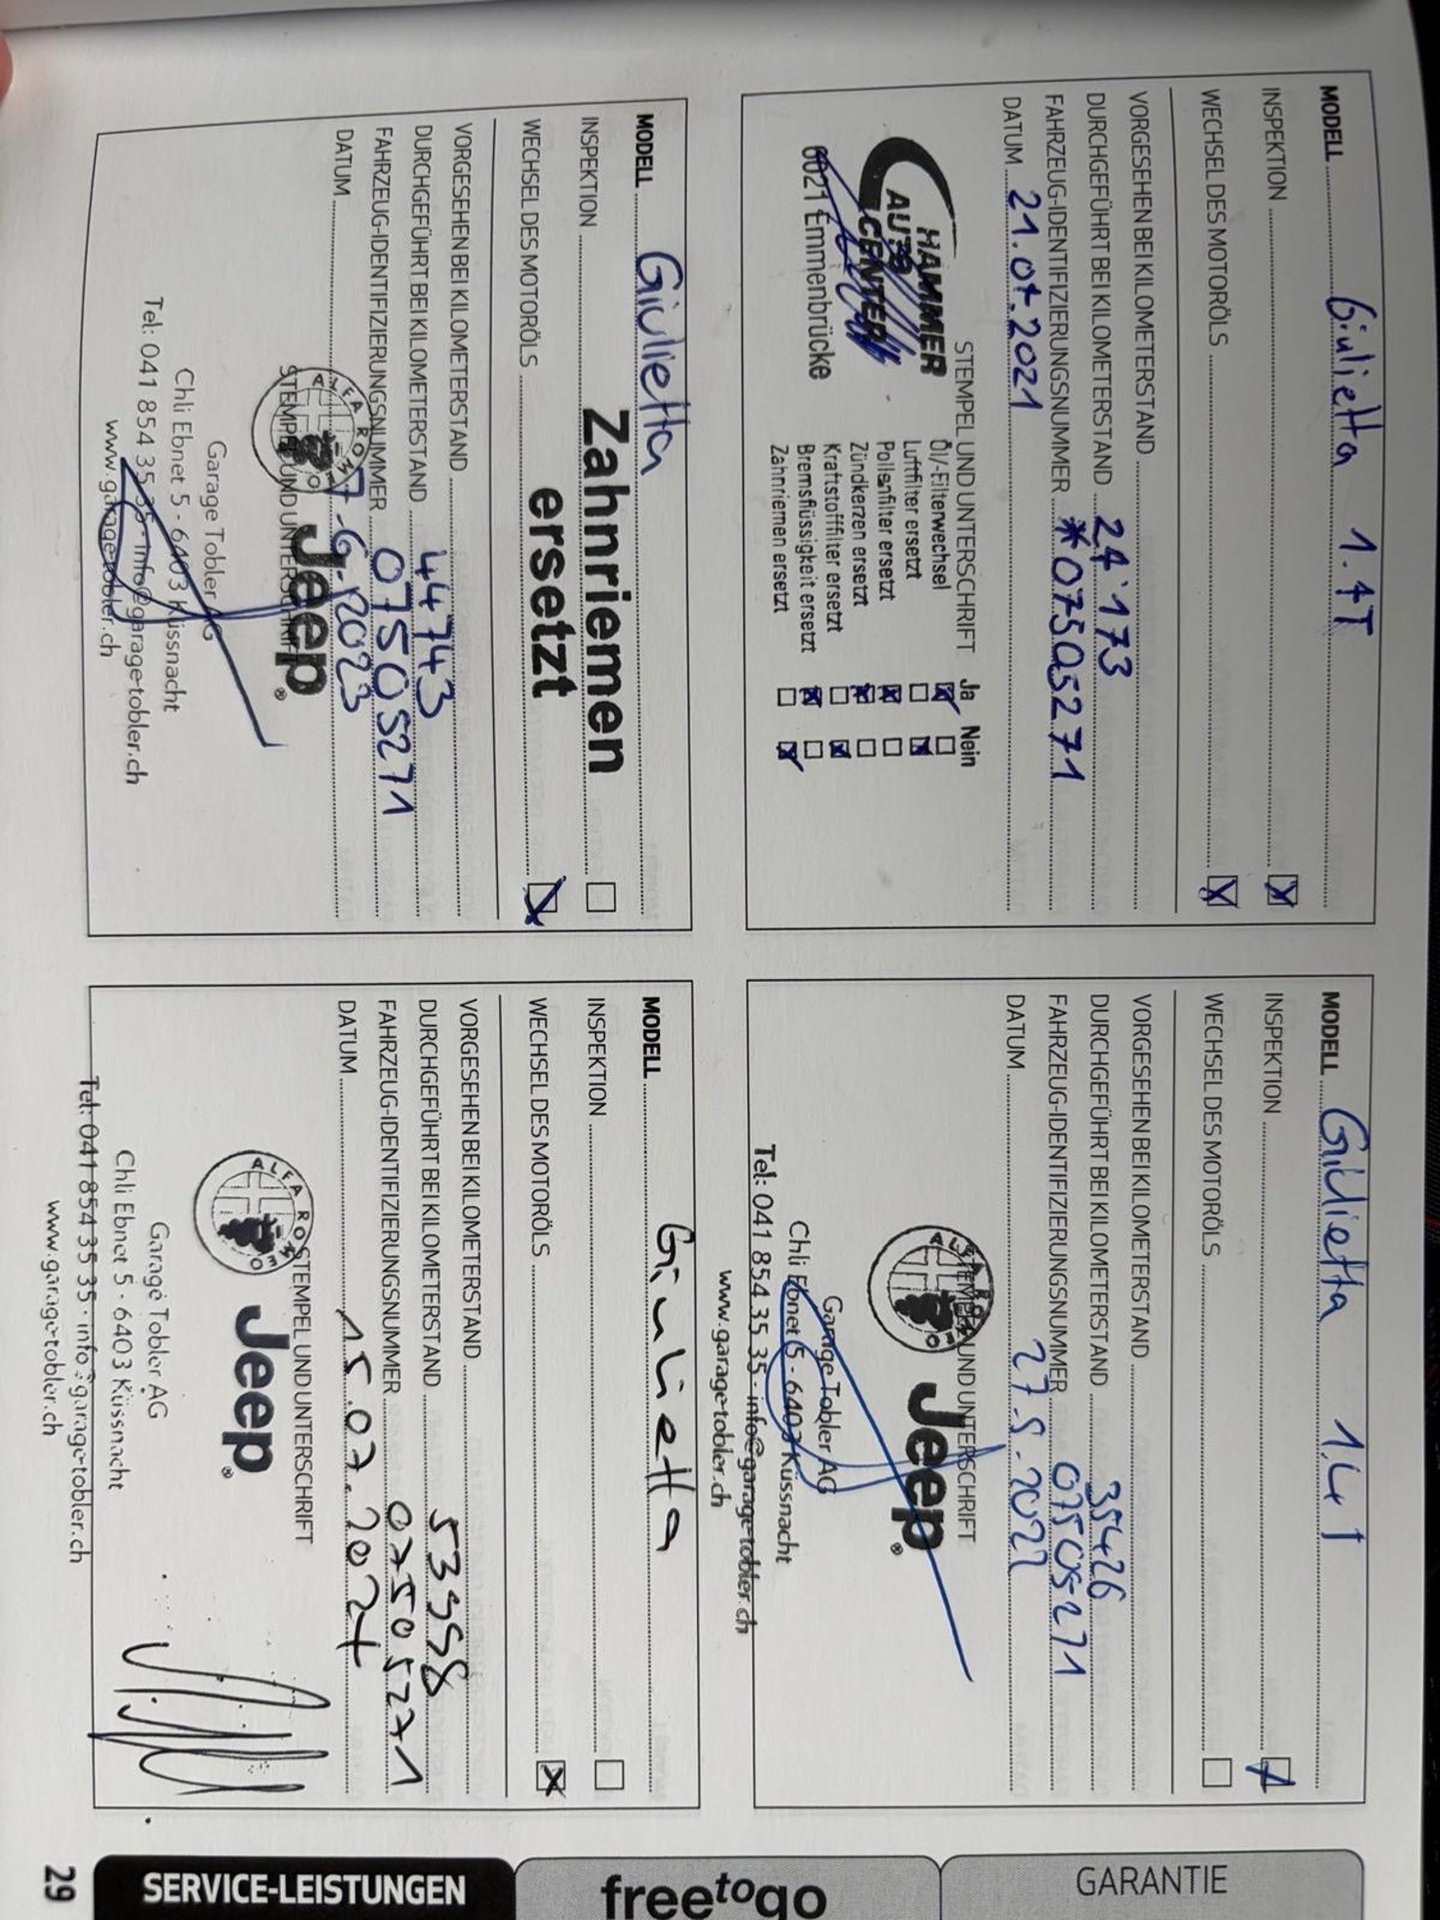 MODELL Giulietta 1.4T
INSPEKTION
WECHSEL DES MOTORÖLS
VORGESEHEN BEI KILOMETERSTAND
DURCHGEFÜHRT BEI KILOMETERSTAND 24'173
FAHRZEUG-IDENTIFIZIERUNGSNUMMER *07505271
DATUM 21.07.2021
STEMPEL UND UNTERSCHRIFT
HAMMER
AUTO
CENTER
6021 Emmenbrücke
Ja Nein
Öl/-Filterwechsel
Luftfilter ersetzt
Pollenfilter ersetzt
Zündkerzen ersetzt
Kraftstofffilter ersetzt
Bremsflüssigkeit ersetzt
Zahnriemen ersetzt
MODELL Giulietta 1.4T
INSPEKTION
WECHSEL DES MOTORÖLS
VORGESEHEN BEI KILOMETERSTAND
DURCHGEFÜHRT BEI KILOMETERSTAND 35426
FAHRZEUG-IDENTIFIZIERUNGSNUMMER 07505271
DATUM 27.5.2022
STEMPEL UND UNTERSCHRIFT
ALFA ROMEO
Jeep®
Garage Tobler AG
Chli Ebnet 5 · 6403 Küssnacht
Tel: 041 854 35 35 · info@garage-tobler.ch
www.garage-tobler.ch
MODELL Giulietta
INSPEKTION Zahnriemen
WECHSEL DES MOTORÖLS ersetzt
VORGESEHEN BEI KILOMETERSTAND
DURCHGEFÜHRT BEI KILOMETERSTAND 44743
FAHRZEUG-IDENTIFIZIERUNGSNUMMER 07505271
DATUM 7.6.2023
STEMPEL UND UNTERSCHRIFT
ALFA ROMEO
Jeep®
Garage Tobler AG
Chli Ebnet 5 · 6403 Küssnacht
Tel: 041 854 35 35 · info@garage-tobler.ch
www.garage-tobler.ch
MODELL Giulietta
INSPEKTION
WECHSEL DES MOTORÖLS
VORGESEHEN BEI KILOMETERSTAND
DURCHGEFÜHRT BEI KILOMETERSTAND
FAHRZEUG-IDENTIFIZIERUNGSNUMMER 07505271
DATUM 15.07.2024
STEMPEL UND UNTERSCHRIFT
ALFA ROMEO
Jeep®
Garage Tobler AG
Chli Ebnet 5 · 6403 Küssnacht
Tel: 041 854 35 35 · info@garage-tobler.ch
www.garage-tobler.ch
GARANTIE
freetogo
SERVICE-LEISTUNGEN
29